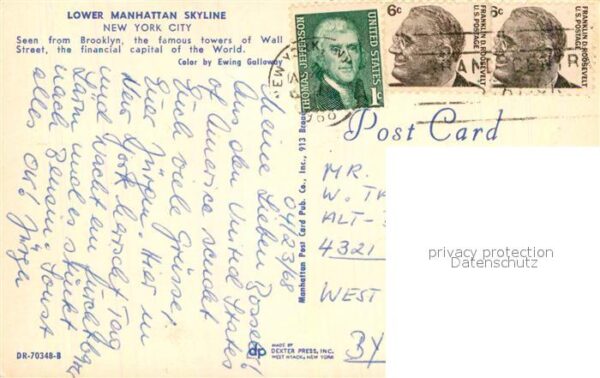 LOWER MANHATTAN SKYLINE
NEW YORK CITY
Seen from Brooklyn, the famous towers of Wall
Street, the financial capital of the World.
Color by Ewing Galloway
THOMAS JEFFERSON
UNITED STATES
1c
6c
FRANKLIN D. ROOSEVELT
U.S. POSTAGE
6c
FRANKLIN D. ROOSEVELT
U.S. POSTAGE
Post Card
Manhattan Post Card Pub. Co., Inc., 913 Broad
04/23/68
Meine Lieben
Aus den United States
of America sendet
Euch viele Grüsse,
Euer Jürgen. Hier in
New York herrscht Tag
und Nacht ein
Lärm und es stinkt
nach Benzin. Sonst
alles o.k.! Jürgen
MR.
W.
ALT-
4321
WEST
privacy protection
Datenschutz
DR-70348-B
dp
MADE BY
DEXTER PRESS, INC.
WEST NYACK, NEW YORK